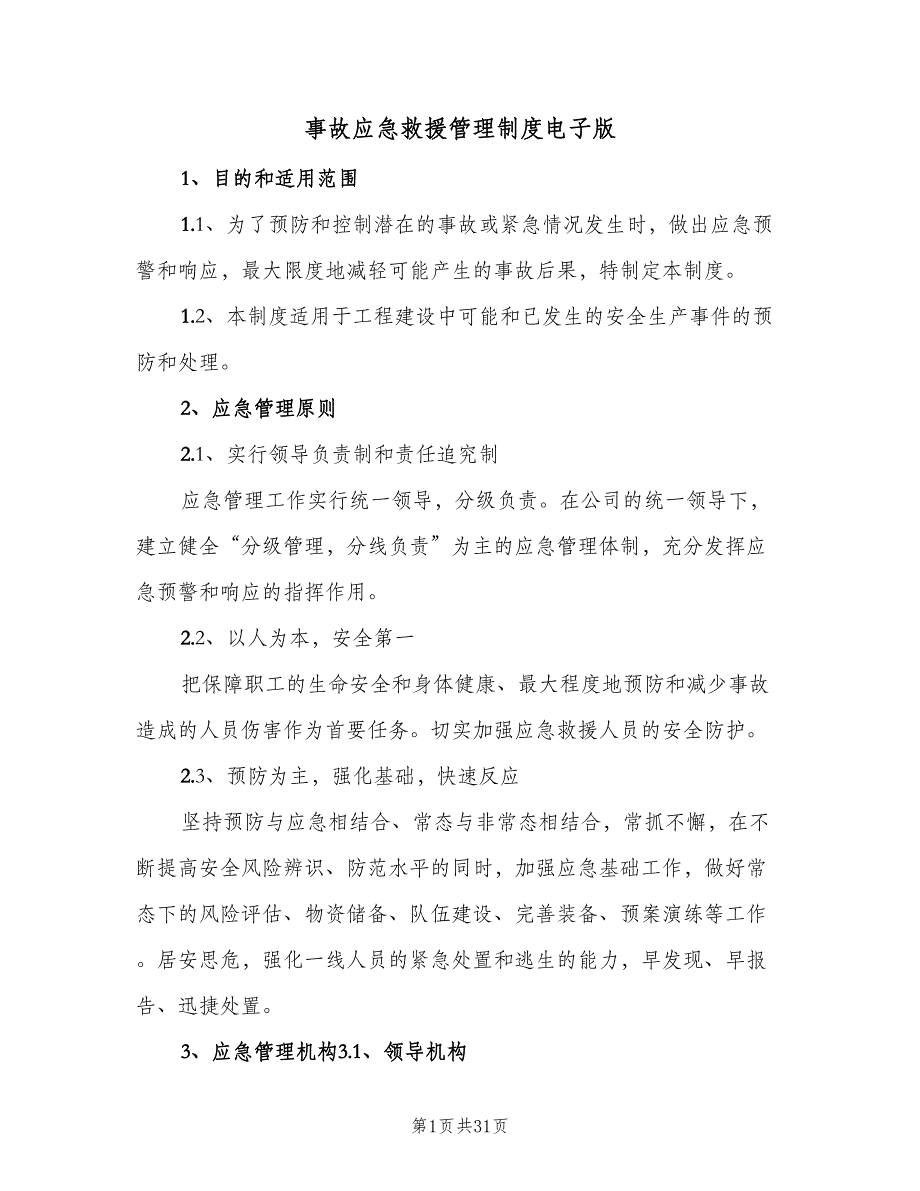 事故应急救援管理制度电子版
1、目的和适用范围
1.1、为了预防和控制潜在的事故或紧急情况发生时，做出应急预
警和响应，最大限度地减轻可能产生的事故后果，特制定本制度。
1.2、本制度适用于工程建设中可能和已发生的安全生产事件的预
防和处理。
2、应急管理原则
2.1、实行领导负责制和责任追究制
应急管理工作实行统一领导，分级负责。在公司的统一领导下，
建立健全“分级管理，分线负责”为主的应急管理体制，充分发挥应
急预警和响应的指挥作用。
2.2、以人为本，安全第一
把保障职工的生命安全和身体健康、最大程度地预防和减少事故
造成的人员伤害作为首要任务。切实加强应急救援人员的安全防护。
2.3、预防为主，强化基础，快速反应
坚持预防与应急相结合、常态与非常态相结合，常抓不懈，在不
断提高安全风险辨识、防范水平的同时，加强应急基础工作，做好常
态下的风险评估、物资储备、队伍建设、完善装备、预案演练等工作
。居安思危，强化一线人员的紧急处置和逃生的能力，早发现、早报
告、迅捷处置。
3、应急管理机构3.1、领导机构
第1页共31页